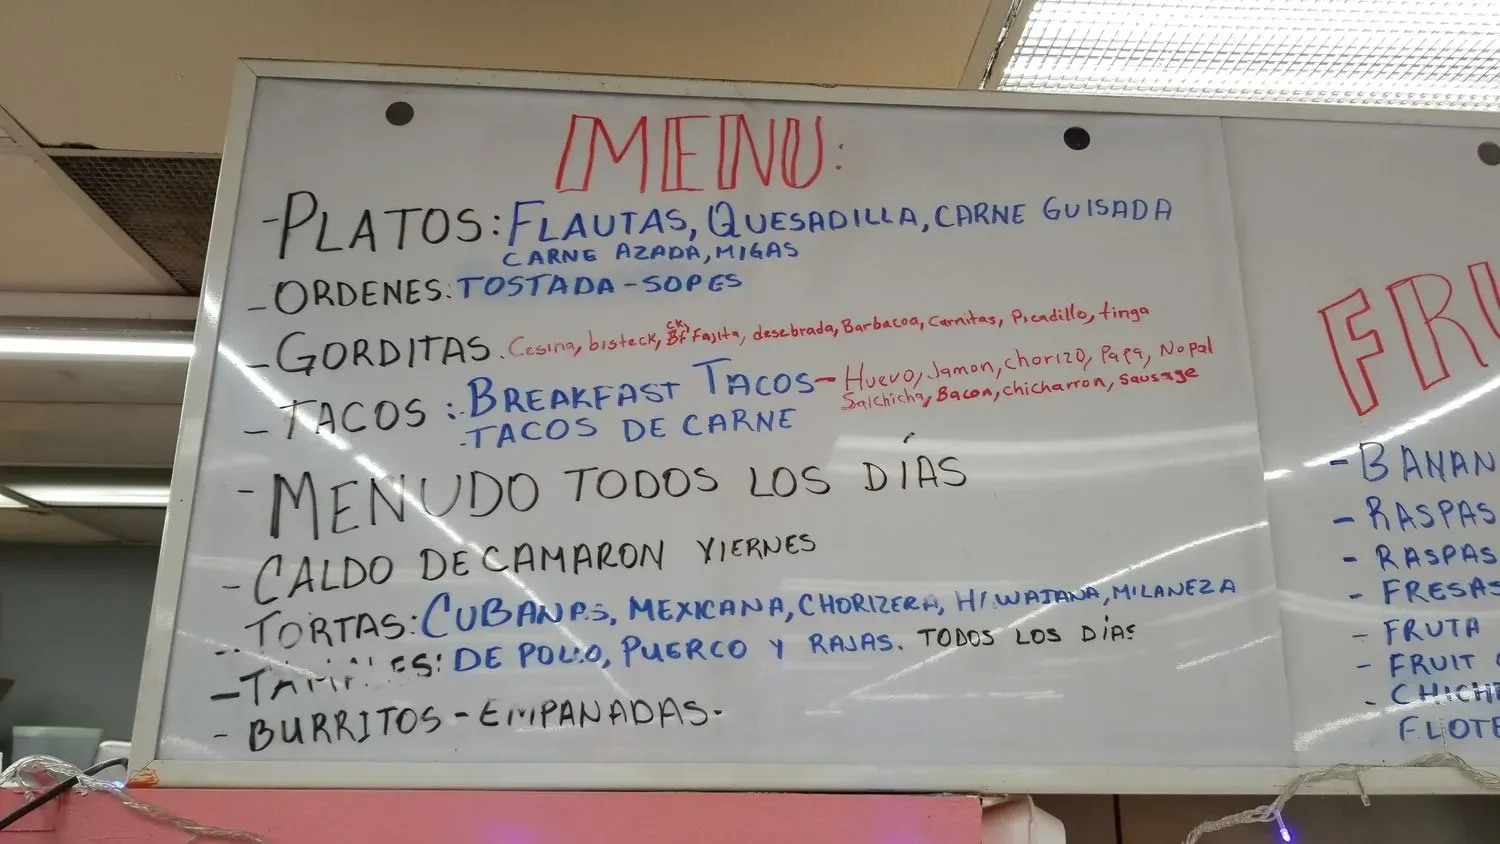 MENU:
-PLATOS: FLAUTAS, QUESADILLA, CARNE GUISADA
CARNE AZADA, MIGAS
-ORDENES: TOSTADA-SOPES
-GORDITAS. Cesina, bisteck, CK, Bf Fajita, desebrada, Barbacoa, Carnitas, Picadillo, tinga
-TACOS: BREAKFAST TACOS- Huevo, Jamon, chorizo, Papa, Nopal
Salchicha, Bacon, chicharron, sausage
-TACOS DE CARNE
-MENUDO TODOS LOS DÍAS
-CALDO DE CAMARON VIERNES
-TORTAS: CUBANAS, MEXICANA, CHORIZERA, HIWAIANA, MILANEZA
-TAMALES: DE POLLO, PUERCO Y RAJAS. TODOS LOS DÍAS
-BURRITOS-EMPANADAS.
FRU
-BANAN
-RASPAS
-RASPAS
-FRESAS
-FRUTA
-FRUIT
-CHICHE
FLOTE